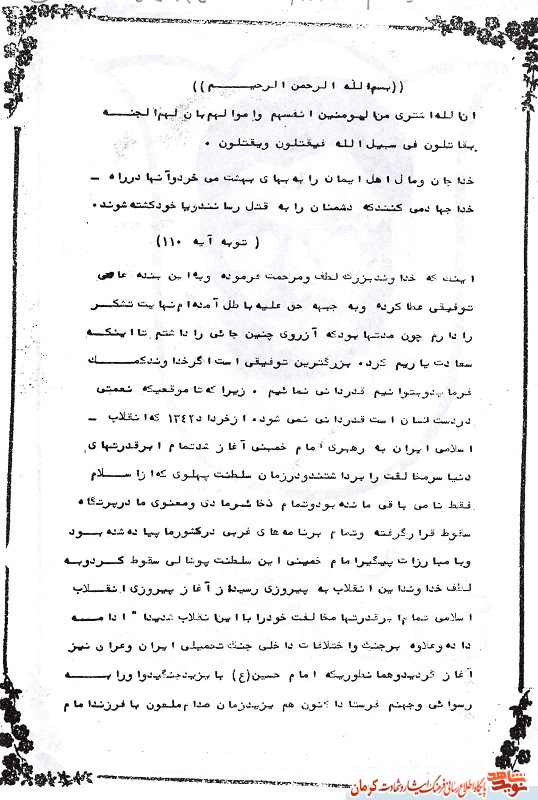 ((بسم الله الرحمن الرحیم))
ان الله اشتری من المومنین انفسهم و اموالهم بان لهم الجنه
یقاتلون فی سبیل الله فیقتلون ویقتلون .
خدا جان ومال اهل ایمان را به بهای بهشت می خرد وآنها در راه ــ
خدا جهاد می کنند که دشمنان را به قتل رسانند ریا خود کشته شوند.
( توبه آیه ۱۱۰)
اینت که خداوند بزرگ لطف ومرحمت فرموده وبه این بنده عاصی
توفیقی عطا کرده وبه جبهه حق علیه باطل آمده ام نهایت تشکر
را دارم چون مدتها بود که آرزوی چنین جائی را داشتم تا اینکه
سعادت یاریم کرد. بزرگترین توفیقی است اگر خداوند کمک
فرماید وبتوانیم قدردانی نمائیم . زیرا که تا موقعیکه نعمتی
در دست انسان است قدردانی نمی شود. از خرداد ۱۳۴۲ که انقلاب ــ
اسلامی ایران به رهبری امام خمینی آغاز شد تمام ابرقدرتهای
دنیا سر مخالفت را برداشتند ودر زمان سلطنت پهلوی که از اسلام
فقط نامی باقی مانده بود وتمام ذخائر مادی ومعنوی ما در پرتگاه
سقوط قرار گرفته وتمام برنامه های غربی در کشور ما پیاده شده بود
وبا مبارزات پیگیر امام خمینی این سلطنت پوشالی سقوط کرد وبه
لطف خداوند این انقلاب به پیروزی رسید از آغاز پیروزی انقلاب
اسلامی تمام ابرقدرتها مخالفت خود را با این انقلاب شدیدا" ادامه
داده وعلاوه بر جنگ واختلافات داخلی جنگ تحمیلی ایران وعراق نیز
آغاز گردید وهمانطوریکه امام حسین(ع) با یزید جنگید واورا به
رسوائی وجهنم فرستاد اکنون هم یزید زمان صدام ملعون با فرزند امام
نوید شاهد
پایگاه اطلاع رسانی فرهنگ ایثار و شهادت کرمان